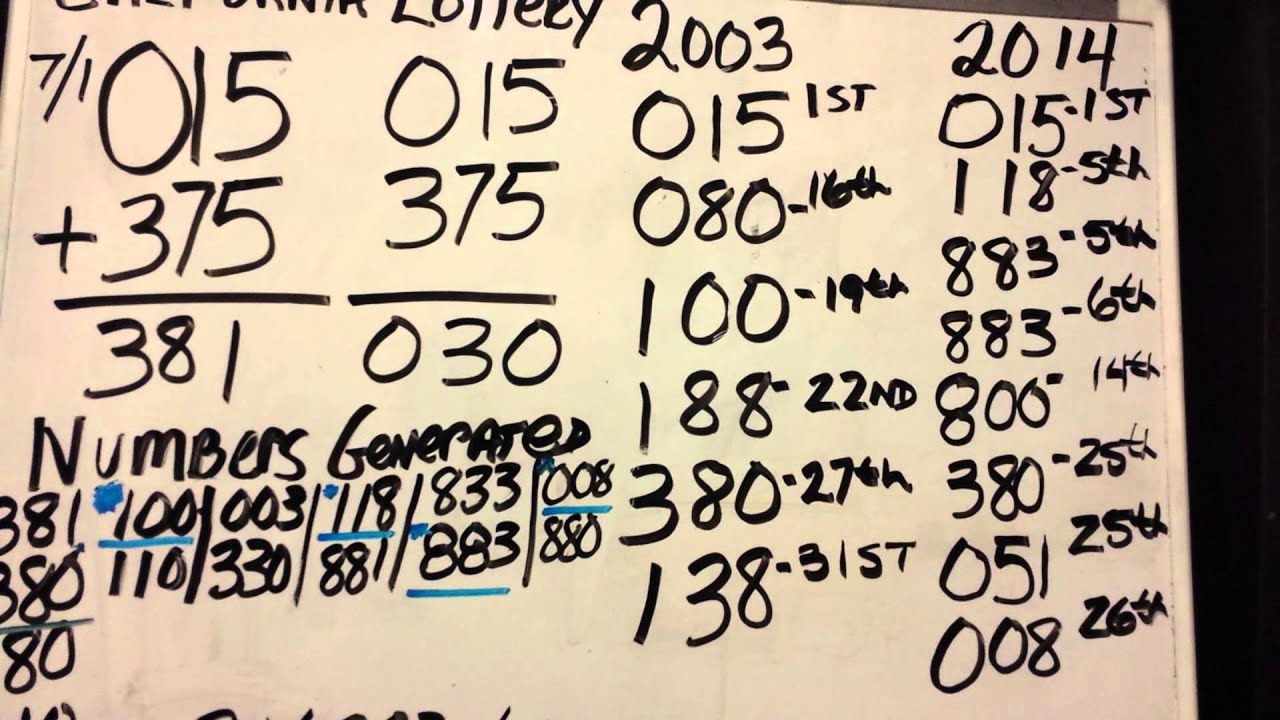 CALIFORNIA LOTTERY
7/1 015 015
+375 375
381 030
NUMBERS GENERATED
381 100 / 003 / 118 / 833 / 008
380 110 / 330 / 881 / 883 / 880
80
2003
015 1ST
080-16th
100-19th
188-22ND
380-27th
138-31ST
2014
015-1ST
118-5th
883-5th
883-6th
800-14th
380-25th
051 25th
008 26th